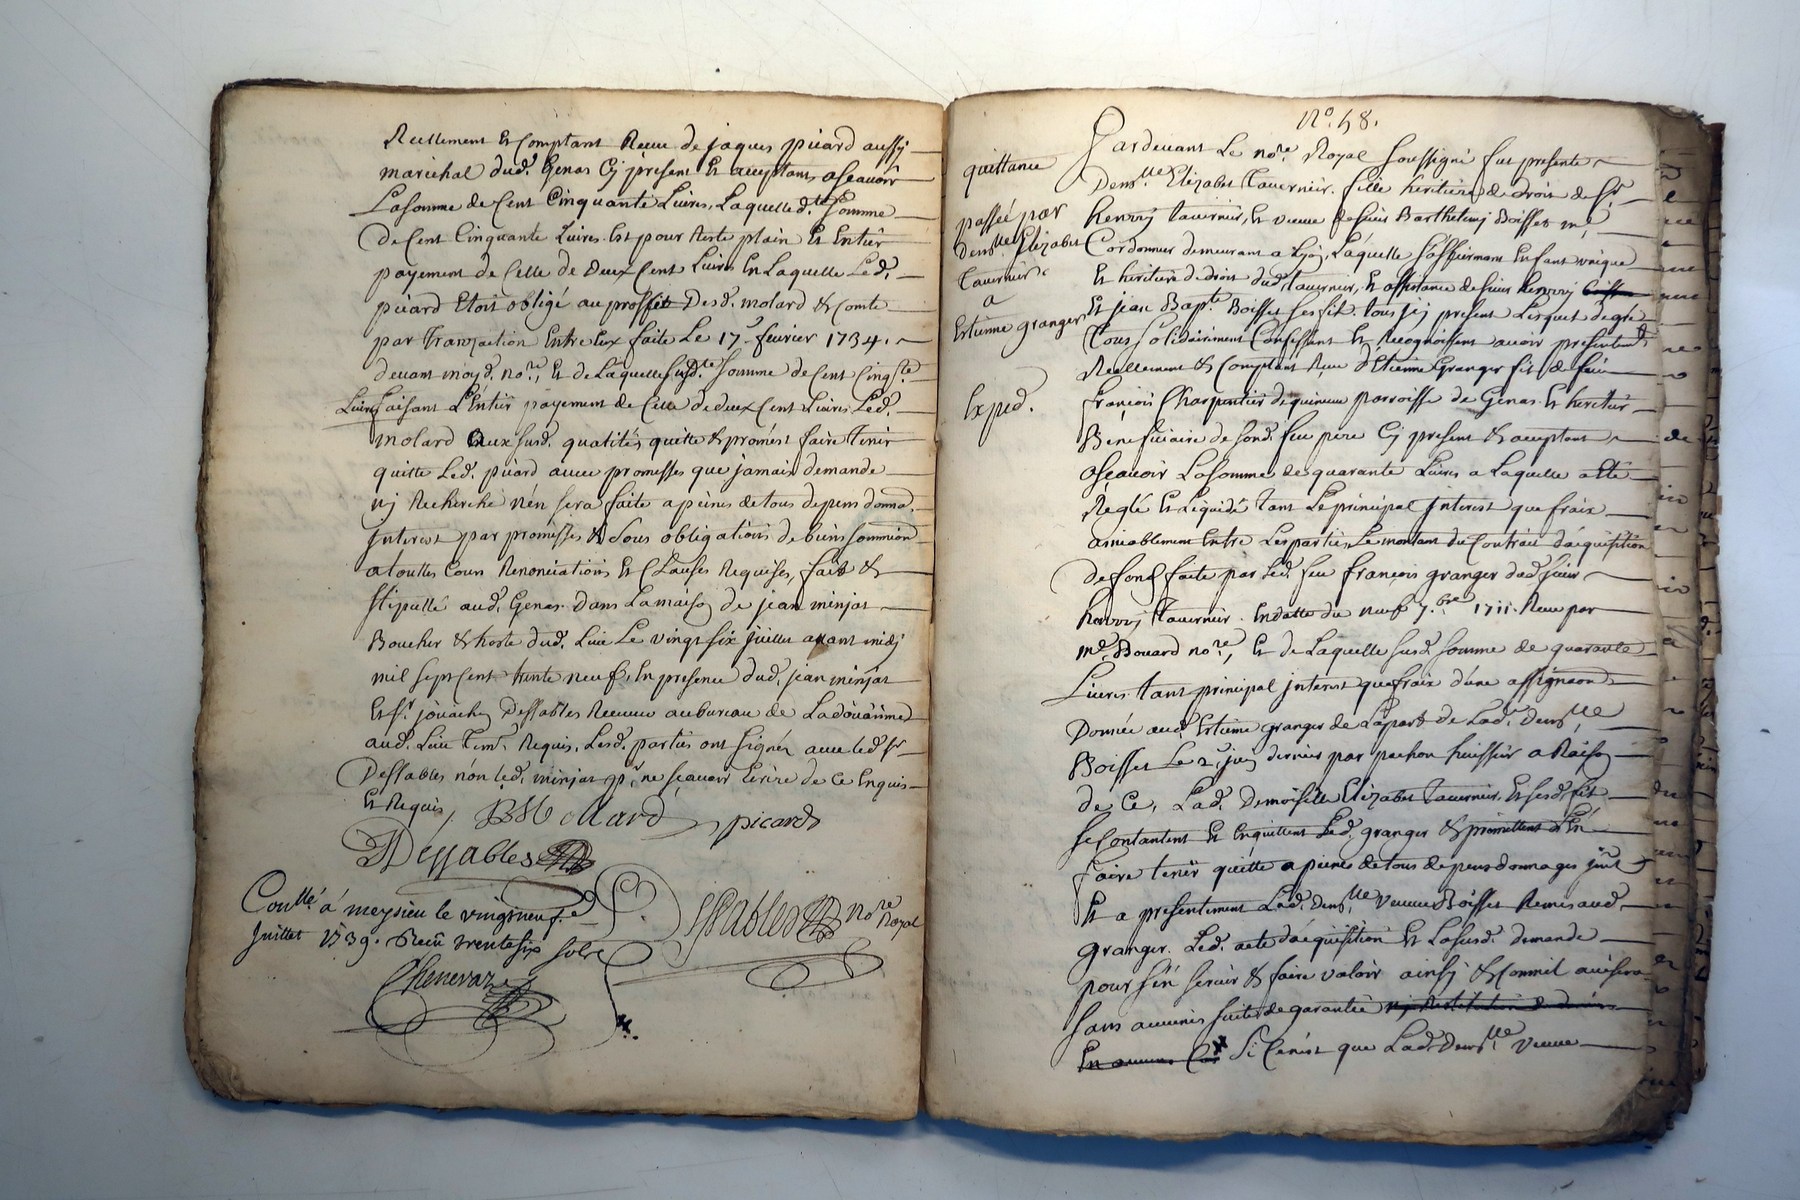 Reellement & Comptant Receu de jaques picard aussy
marechal dud. Genas Cy présent & acceptant, ascavoir
La somme de Cent Cinquante Livres, Laquelle d.te Somme
de Cent Cinquante Livres Est pour Reste plain & Entier
payement de Celle de deux Cent Livres En Laquelle Led.
picard Etoit obligé au proffit Desd. molard & Comte
par Transaction Entre Eux faite Le 17 fevrier 1734.
devant moyd. no.re, & de Laquelle susd.te Somme de Cent Cinq.te
Livres faisant L'Entier payement de Celle de deux Cent Livres Led.
molard aux susd. qualités quitte & promest faire Tenir
quitte Led. picard avec promesses que jamais demande
ny Recherche n'en sera faite a peines de tous depens domma.
Interest par promesses & Sous obligations de biens soumission
a touttes Cours Renonciations & Clauses Requises, fait &
stipullé aud. Genas dans La maison de jean minjat
Boucher & hoste dud. Lieu Le vingt six juillet avant midy
mil sept Cent trente neuf, En presence dud. jean minjat
& Sr. joüachin Dessables Receveur au bureau de La doüanne
aud. Lieu Tem. Requis. Lesd. parties ont signés avec led. Sr
Dessables non led. minjat pr. ne sçavoir Ecrire de Ce Enquis
& Requis,
BMollard picard
Dessables
Dessables no.re Royal
Conllé á meysieu le vingtneuf.e
Juillet 1739. Receu trente six sols
Chenevaz
No. 58.
Pardevant Le no.re Royal Soussigné fut presente
quittance
Dem.lle Elizabet Tavernier. fille heritiere de droit de Sr.
passée par
henry tavernier, & veuve de sieur Barthelemy Boisset me
dem.lle Elizabet
Cordonnier demeurant a Lyon, Laquelle s'affirmant Enfant unique
Tavernier
& heritiere de droit dud. Tavernier, & assistance de sieur henry
a
& jean Bapt.e Boisset ses fils. tous jcy present Lesquels de gré
Estienne granger
Tous solidairement Confessent & Recognoissent avoir presentem.t
Reellement & Comptant Receu d'Etienne Granger fils de feu
Exped.
françois Charpentier de quineu parroisse de Genas. & heritier
Beneficiaire de sond. feu pere Cy present & acceptant
ascavoir La somme de quarante Livres a Laquelle a été
Réglé & Liquidé Tant Le principal Interest que fraix
amiablement Entre Les parties Le montant du Contrait d'acquisition
de fond faite par Led. feu françois granger dud. sieur
henry Tavernier. En datte du neuf 7.bre 1711. Receu par
me. Bouard no.re, & de Laquelle susd. somme de quarante
Livres tant principal jnterest que fraix d'une assignaon
Donnée aud. Estienne granger de La part de Lad. Dem.lle
Boisset Le 2 juin dernier par pachon huissier a Raison
de Ce, Lad. Demoiselle Elizabet Tavernier, & sesd. fils
se Contantent & Enquittent Led. granger & promettent L'En
faire tenir quitte a peines de tous depens dommages jnt.
& a presentement Lad. Dem.lle veuve Boisset Remis aud.
Granger. Led. acte d'acquisition & La susd. demande
pour s'en servir & faire valoir ainsy & Comme il avisera
sans aucunes suites de garantie ny Restitution de deniers
En aucuns Cas Si Ce n'est que Lad. Dem.lle veuve